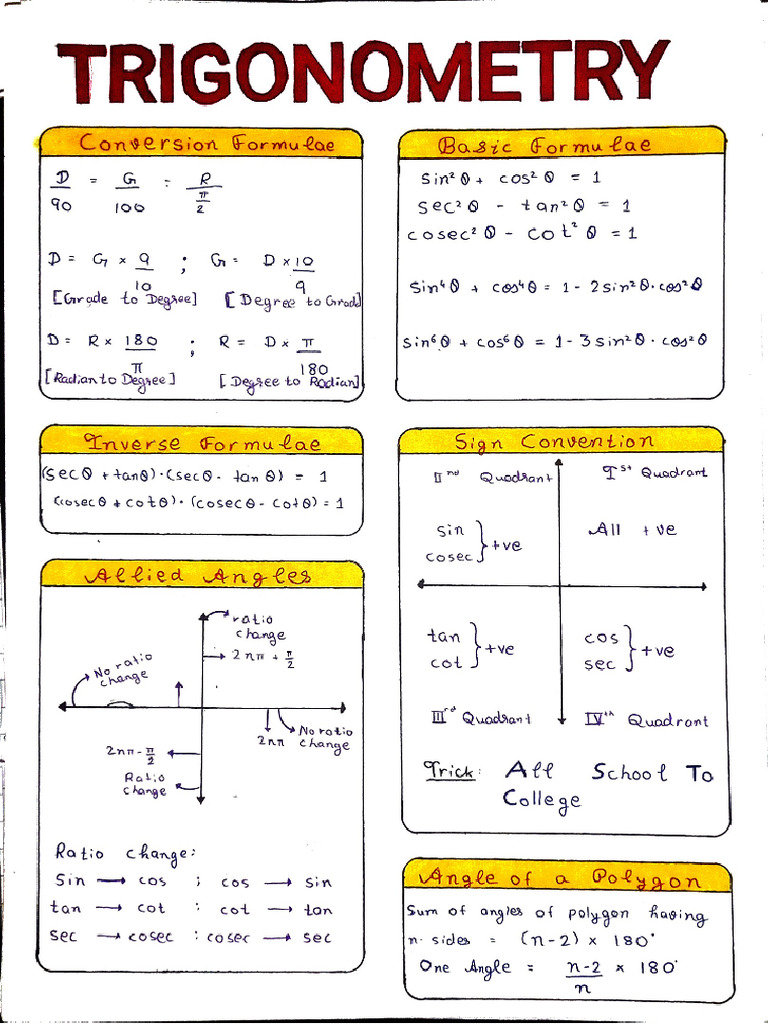 TRIGONOMETRY
Conversion Formulae
D/90 = G/100 = R/(π/2)
D = G × 9/10 ; G = D × 10/9
[Grade to Degree] [Degree to Grad]
D = R × 180/π ; R = D × π/180
[Radian to Degree] [Degree to Radian]
Basic Formulae
sin²θ + cos²θ = 1
sec²θ - tan²θ = 1
cosec²θ - cot²θ = 1
sin⁴θ + cos⁴θ = 1 - 2sin²θ·cos²θ
sin⁶θ + cos⁶θ = 1 - 3sin²θ·cos²θ
Inverse Formulae
(secθ + tanθ)·(secθ - tanθ) = 1
(cosecθ + cotθ)·(cosecθ - cotθ) = 1
Sign Convention
IInd Quadrant Ist Quadrant
sin
cosec } +ve
All +ve
tan
cot } +ve
cos
sec } +ve
IIIrd Quadrant IVth Quadrant
Trick: All School To
College
Allied Angles
ratio
change
2nπ + π/2
No ratio
change
2nπ
No ratio
change
2nπ - π/2
Ratio
change
Ratio change:
Sin → cos ; cos → sin
tan → cot : cot → tan
sec → cosec : cosec → sec
Angle of a Polygon
Sum of angles of polygon having
n. sides = (n-2) × 180°
One Angle = n-2/n × 180°